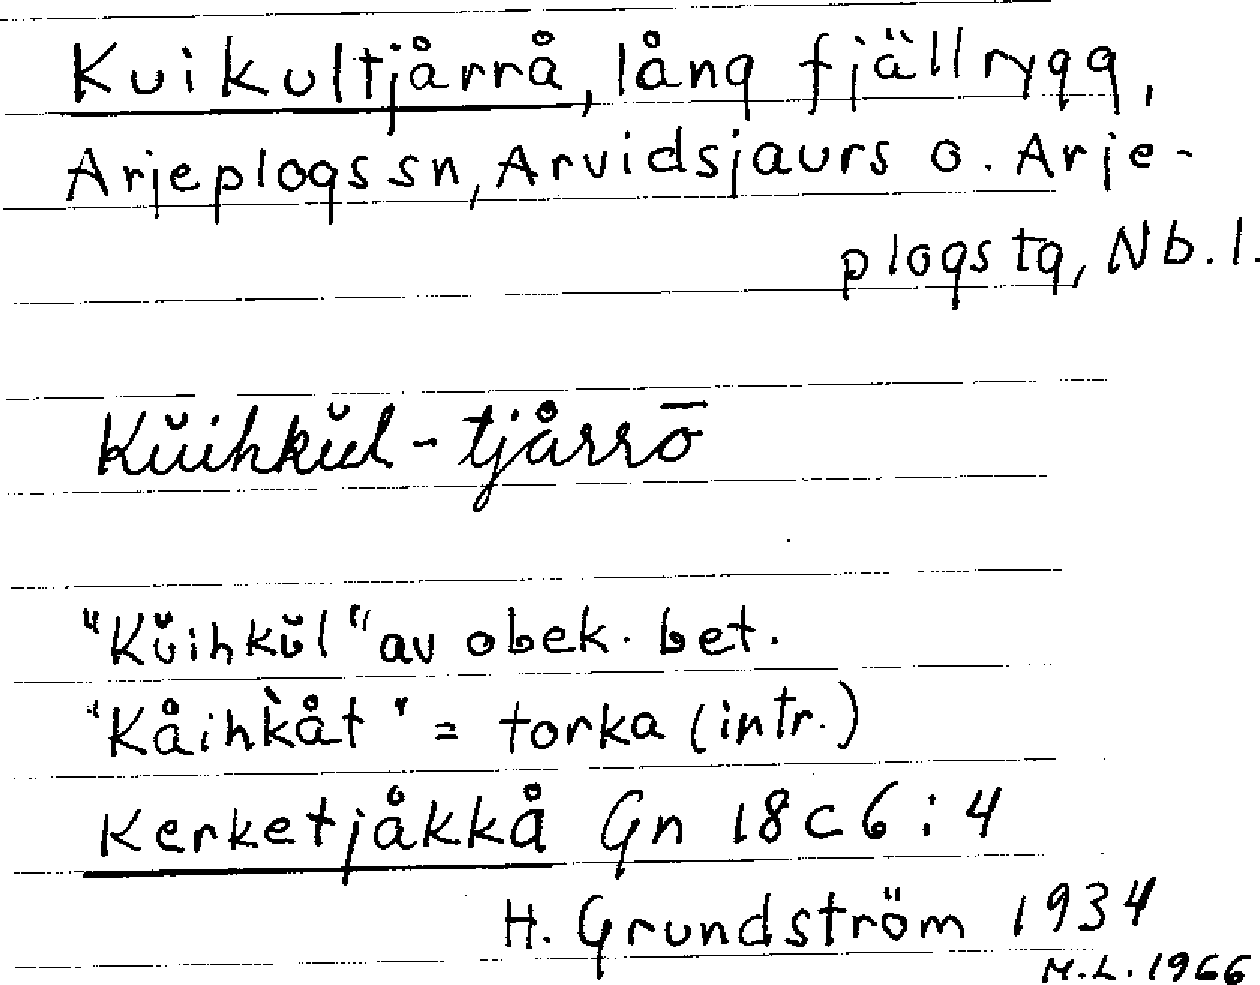 Kuikultjårrå, lång fjällrygg,
Arjeplogs sn, Arvidsjaurs o. Arje-
plogs tg, Nb. l.
Kŭihkŭl - tjårrō
"Kŭihkŭl" av obek. bet.
"Kåihk̀åt" = torka (intr.)
Kerketjåkkå Gn 18 c 6 : 4
H. Grundström 1934
M.L. 1966